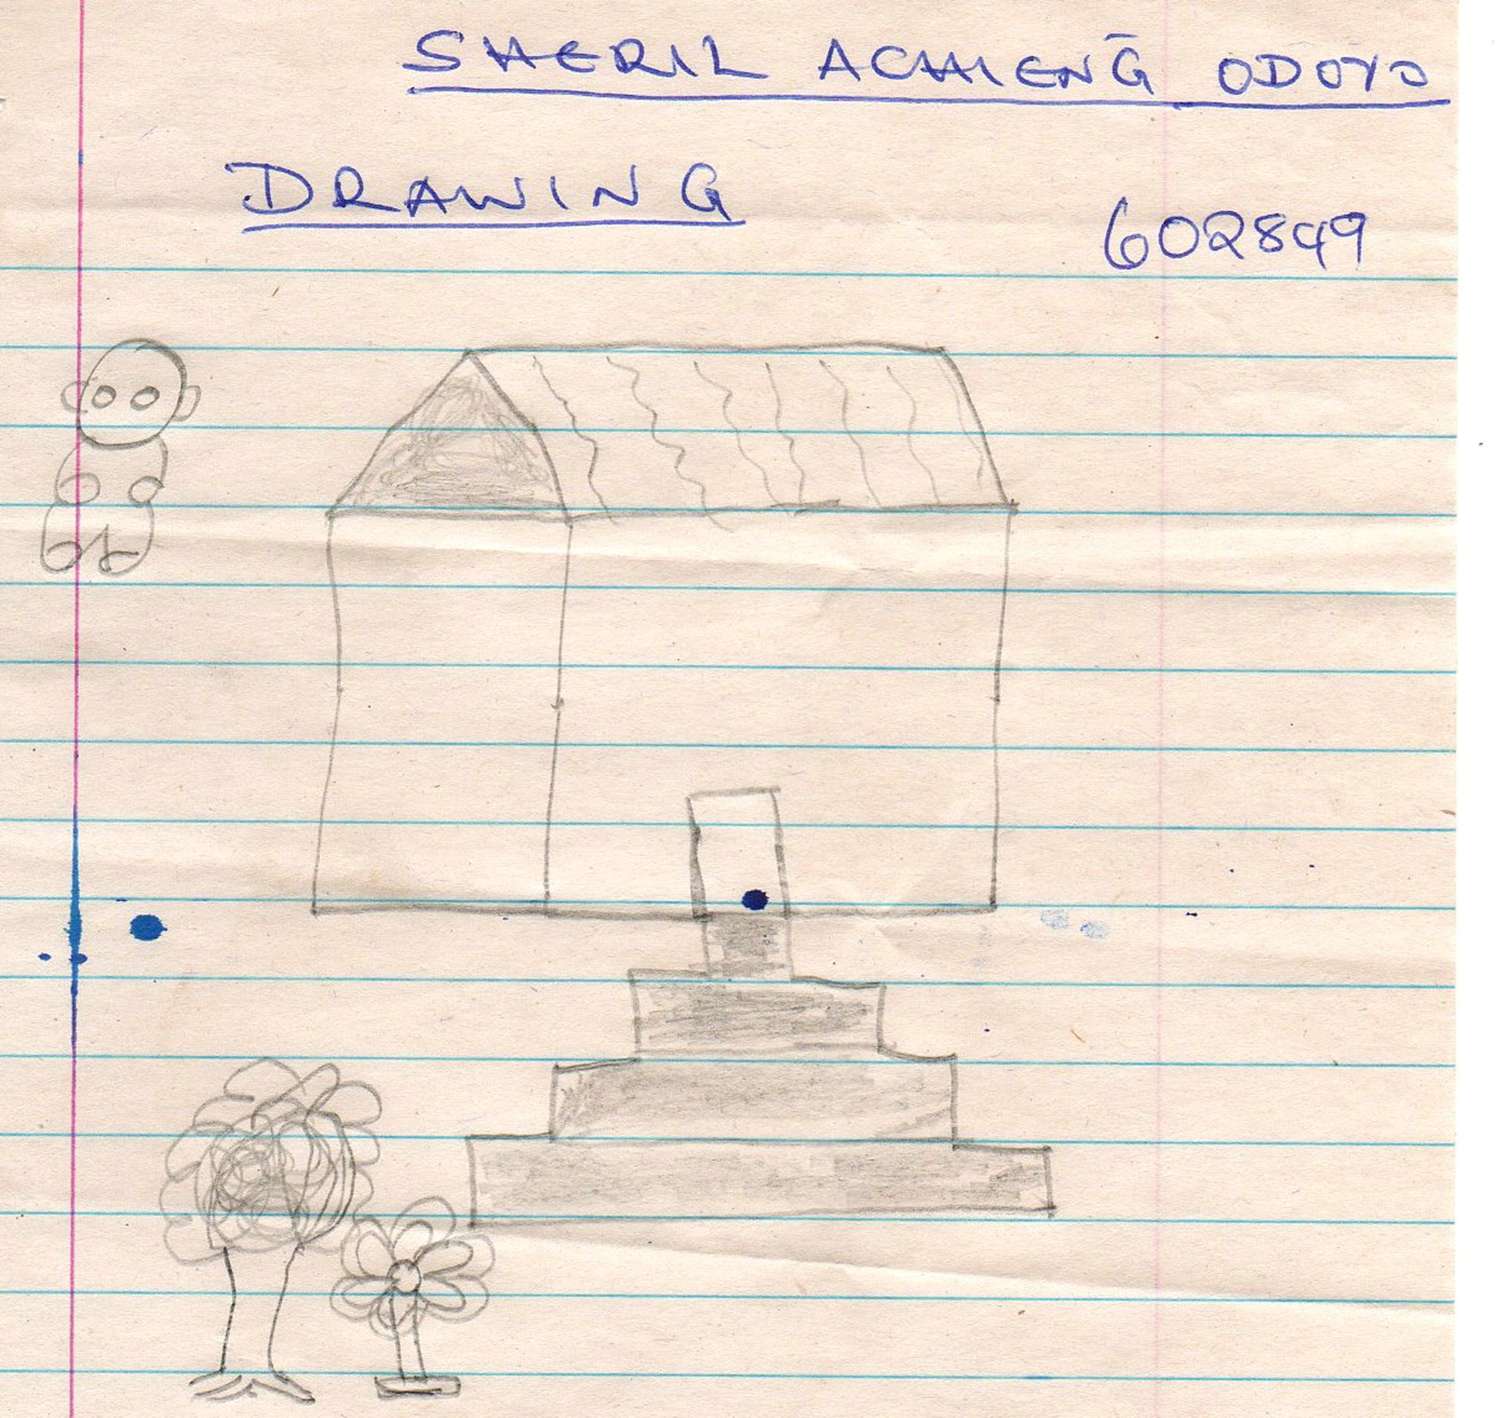 SHERIL ACHIENG ODOYO
DRAWING
602849